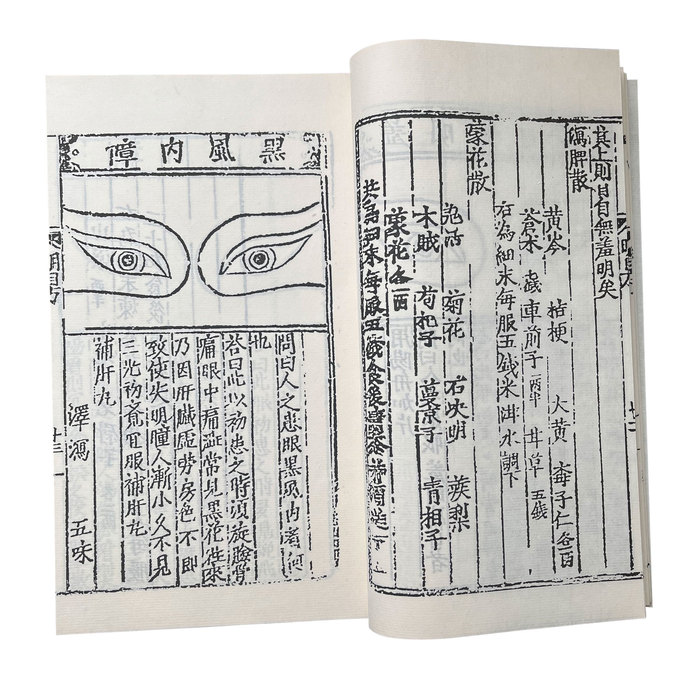 其上則目自無羞明矣
瀉脾散
黃芩 桔梗 大黃 子仁各
蒼朮 車前子 甘草 五錢
右為細末每服五錢米泔水調下
蒙花散
羗活 菊花 石決明 蒺梨
木賊 枸杞子 蔓京子 青相子
蒙花各
共為細末每服五錢食後
黑風內障
問曰人之患眼黑風內者何
也
答曰此以初患之時頭旋臉骨
痛眼中痛澁常見黑花徃來
乃因肝臟虛勞房色不即
致使失明瞳人漸小久不見
三光初宜服補肝丸
補肝丸
澤瀉 五味